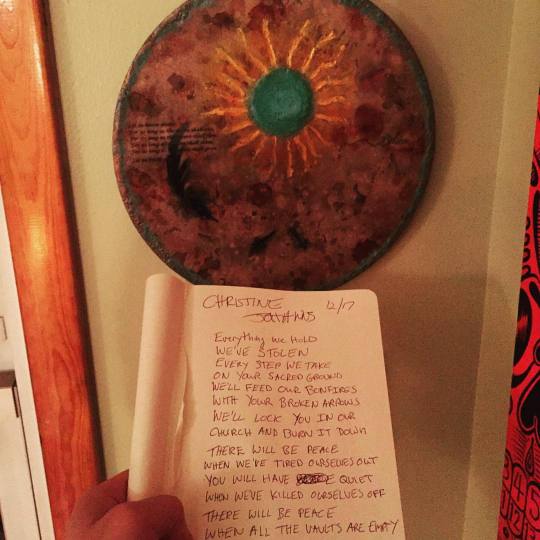 CHRISTINE 12/17
Everything we HOLD
WE'VE STOLEN
EVERY STEP WE TAKE
ON YOUR SACRED GROUND
WE'LL FEED OUR BONFIRES
WITH YOUR BROKEN ARROWS
WE'LL LOCK YOU IN OUR
CHURCH AND BURN IT DOWN
THERE WILL BE PEACE
WHEN WE'VE TIRED OURSELVES OUT
YOU WILL HAVE QUIET
WHEN WE'VE KILLED OURSELVES OFF
THERE WILL BE PEACE
WHEN ALL THE VAULTS ARE EMPTY